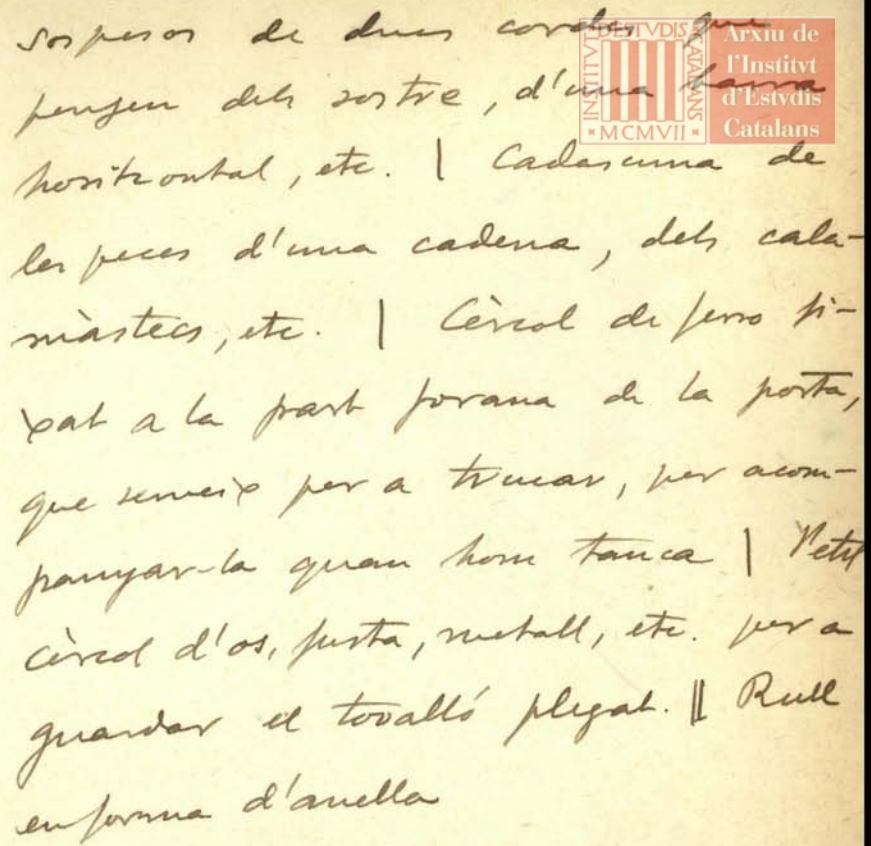 sospesos de dues cordes que
pengen dels sostre, d'una barra
horitzontal, etc. | Cadascuna de
les peces d'una cadena, dels cala-
màstecs, etc. | Cèrcol de ferro fi-
xat a la part forana de la porta,
que serveix per a trucar, per acom-
panyar-la quan hom tanca | Petit
cèrcol d'os, fusta, metall, etc. per a
guardar el tovalló plegat. || Rull
en forma d'anella
INSTITVT D'ESTVDIS CATALANS
MCMVII
Arxiu de
l'Institvt
d'Estvdis
Catalans